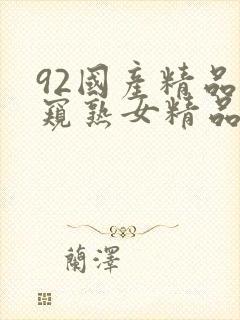 92國產精品
窺熟女精品
蘭澤